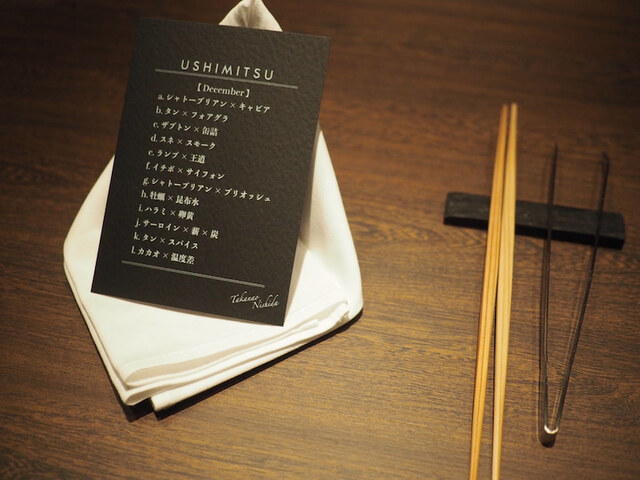 USHIMITSU
【December】
a. シャトーブリアン × キャビア
b. タン × フォアグラ
c. ザブトン × 缶詰
d. スネ × スモーク
e. ランプ × 王道
f. イチボ × サイフォン
g. シャトーブリアン × ブリオッシュ
h. 牡蠣 × 昆布水
i. ハラミ × 卵黄
j. サーロイン × 薪 × 炭
k. タン × スパイス
l. カカオ × 温度差
Takanao
Nishida